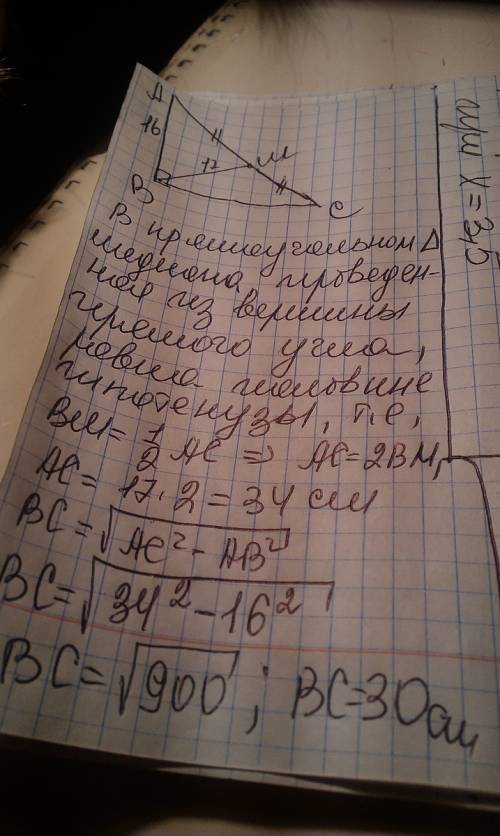 A
16
17
M
B
C
В прямоугольном Δ
медиана проведен-
ная из вершины
прямого угла,
равна половине
гипотенузы, т.е,
BM = 1/2 AC ⇒ AC = 2BM,
AC = 17·2 = 34 см
BC = √AC² - AB²
BC = √34² - 16²
BC = √900 ; BC = 30 см
при x = 3,5